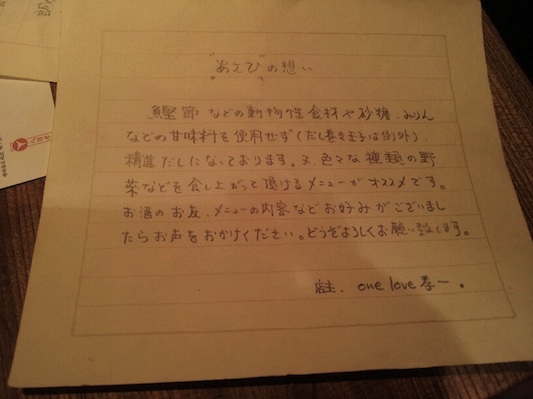 "あそび"の想い
鰹節などの動物性食材や砂糖、みりん
などの甘味料を使用せず(だし巻き玉子は例外)、
精進だしになっております。又、色々な種類の野
菜などを召し上がって頂けるメニューがオススメです。
お酒のお友、メニューの内容などお好みがございまし
たらお声をおかけください。どうぞよろしくお願い致します。
店主、one love 孝一。